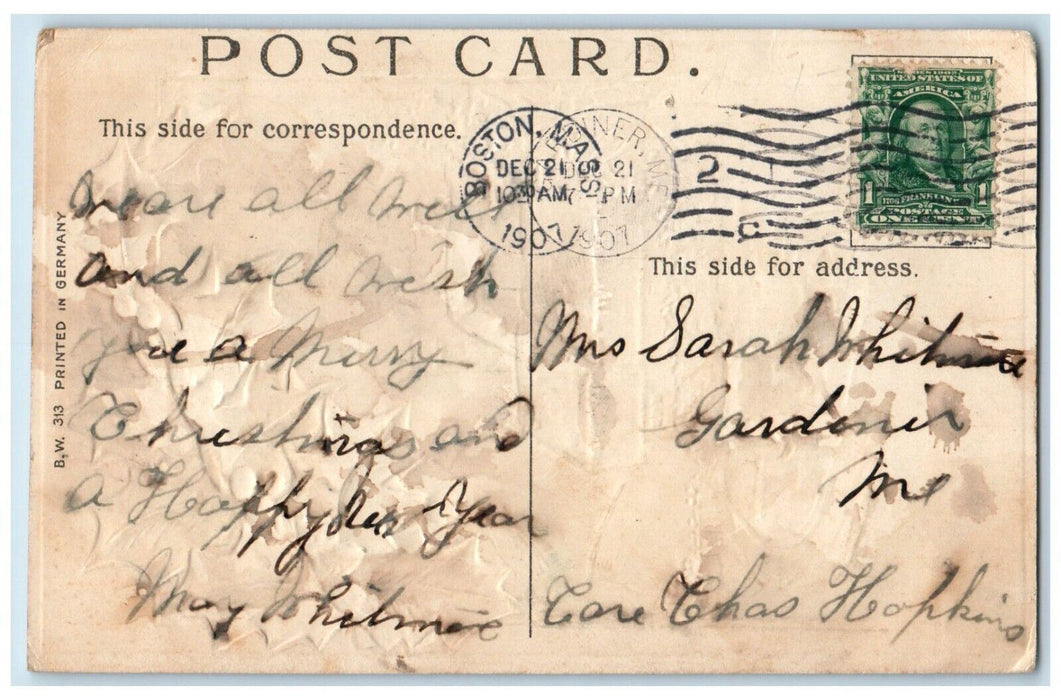 POST CARD.
This side for correspondence.
BOSTON, MASS
DEC 21
10 AM
1907
GARDINER, ME
DEC 21
7 PM
1907
2
C
SERIES 1902
UNITED STATES OF
AMERICA
1 1
1706 FRANKLIN
POSTAGE
ONE CENT
We are all well
and all wish
you a Merry
Christmas and
a Happy New Year
May Whitmore
B.W. 313 PRINTED IN GERMANY
This side for address.
Mrs Sarah Whitmore
Gardiner
Me
Care Chas Hopkins